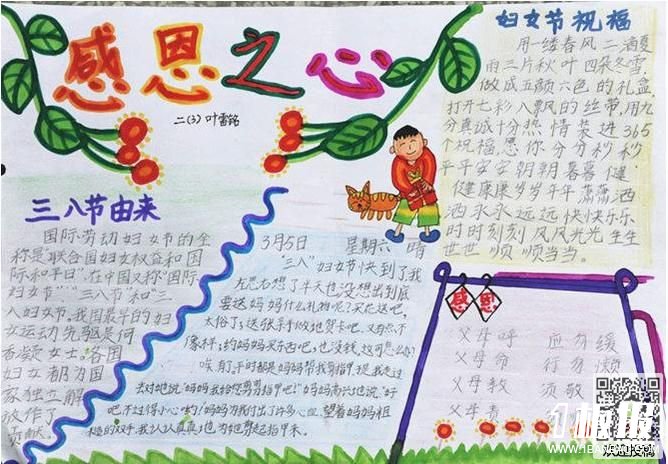 感恩之心
二(3) 叶雪铭
妇女节祝福
用一缕春风二滴夏
雨三片秋叶四朵冬雪,
做成五颜六色的礼盒,
打开七彩八飘的丝带,用九
分真诚十分热情装进365
个祝福,愿你分分秒秒
平平安安朝朝暮暮健
健康康岁岁年年潇潇洒
洒永永远远快快乐乐
时时刻刻风风光光生生
世世顺顺当当。
三八节由来
国际劳动妇女节的全
称是联合国妇女权益和国
际和平日",在中国又称"国际
妇女节""三八节"和"三
八妇女节,我国最早的妇
女运动先驱是何
香凝女士。各国
妇女都为国
家独立解
放作了
贡献。
3月5日 星期六 晴
"三八"妇女节快到了我
左思右想了半天也没想出到底
要送妈妈什么礼物呢?买花送吧,
太俗了;送张手做地贺卡吧,又有点不
像样;约妈妈买东西吧,也没钱。这可怎么办?
唉!有了,平时都是妈妈帮我剪指甲,我走过
去对她说:"妈妈我给您剪剪指甲吧!"妈妈高兴地说:"好
吧,不过得小心哦!"妈妈为我付出了许多心血,望着妈妈粗
糙的双手,我认认真真地为她剪起指甲来。
感恩
父母呼 应勿缓
父母命 行勿懒
父母教 须敬
父母责
WWW.1BANBAO.COM
欢迎投稿